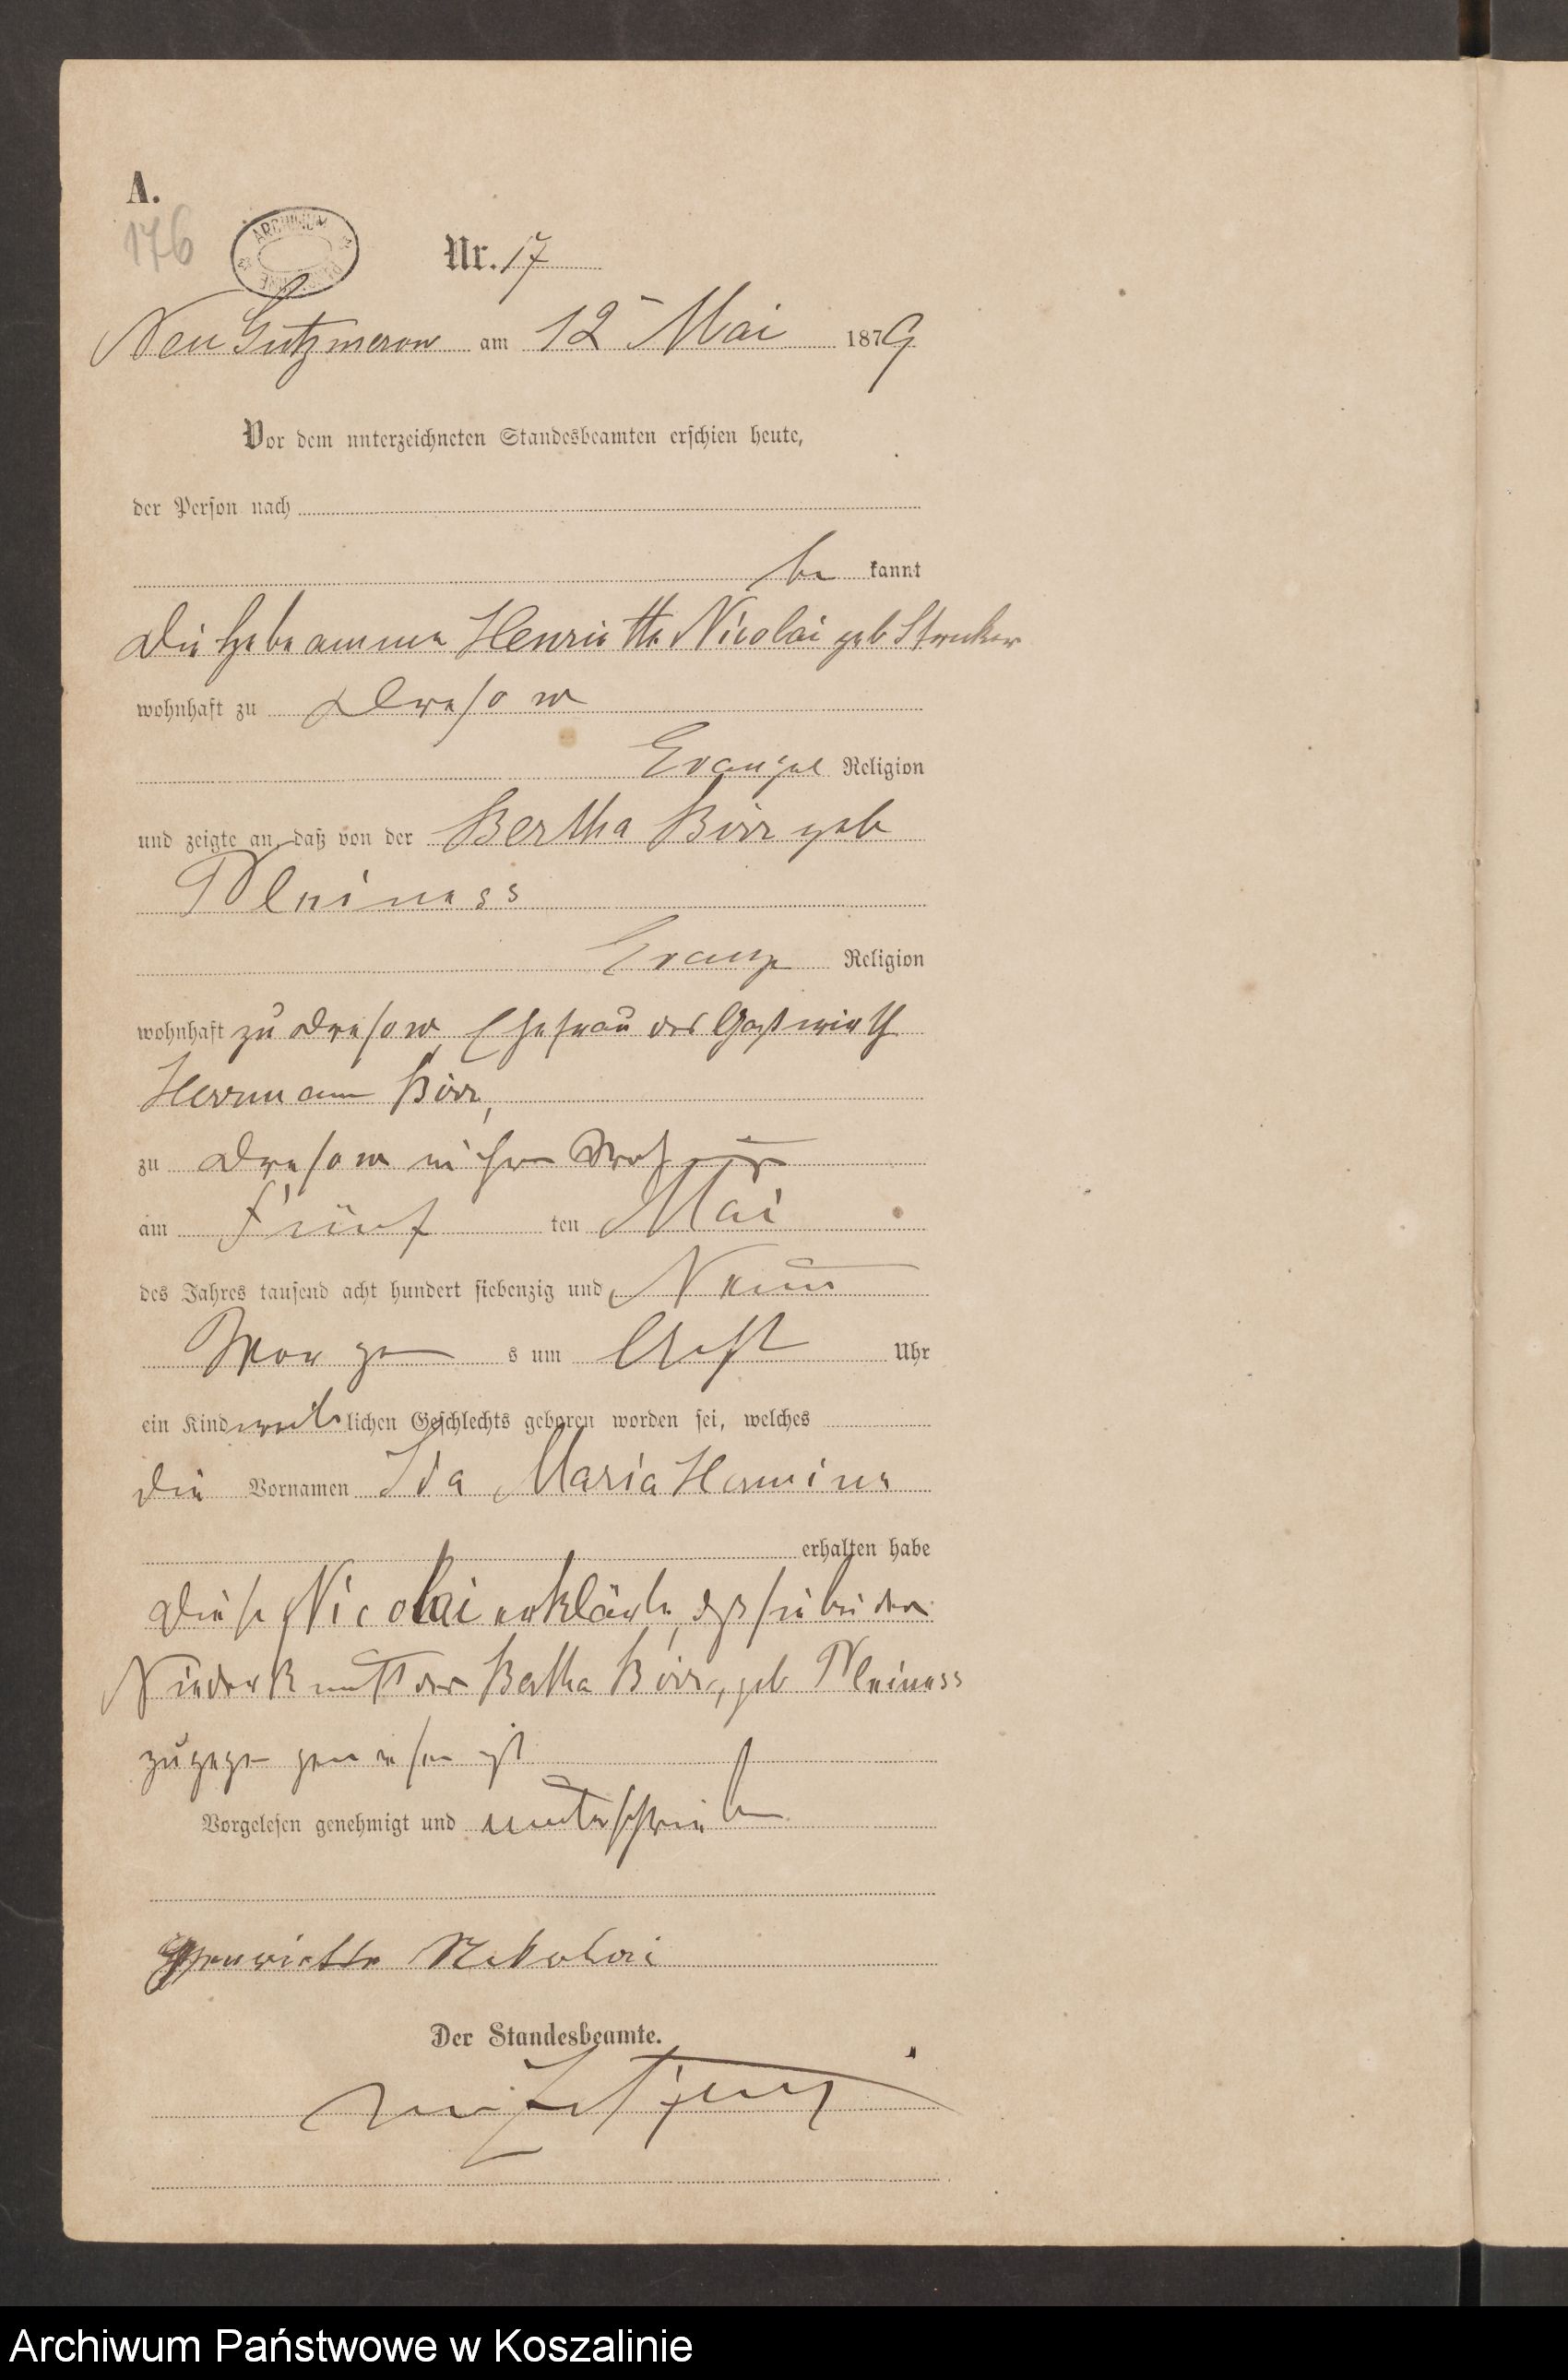 A.
176
ARCHIWUM
Nr. 17
Neu Gutzmerow am 12 Mai 1879
Vor dem unterzeichneten Standesbeamten erschien heute,
der Person nach
be kannt
Die Hebeamme Henriette Nicolai geb
wohnhaft zu Dresow
Evangel Religion
und zeigte an, daß von der Bertha Birr geb
Pleiness
Evang Religion
wohnhaft zu Dresow, Ehefrau des Gastwirth
Hermann Birr,
zu Dresow in ihrer
am Fünf ten Mai
des Jahres tausend acht hundert siebenzig und Neun
Morgen s um Acht Uhr
ein Kind weib lichen Geschlechts geboren worden sei, welches
die Vornamen Ida Maria Hermine
erhalten habe
Diese Nicolai erklärte, daß sie bei der
Niederkunft der Bertha Birr, geb Pleiness
zugegen gewesen ist
Vorgelesen genehmigt und unterschrieben
Henriette Nikolai
Der Standesbeamte.
Archiwum Państwowe w Koszalinie